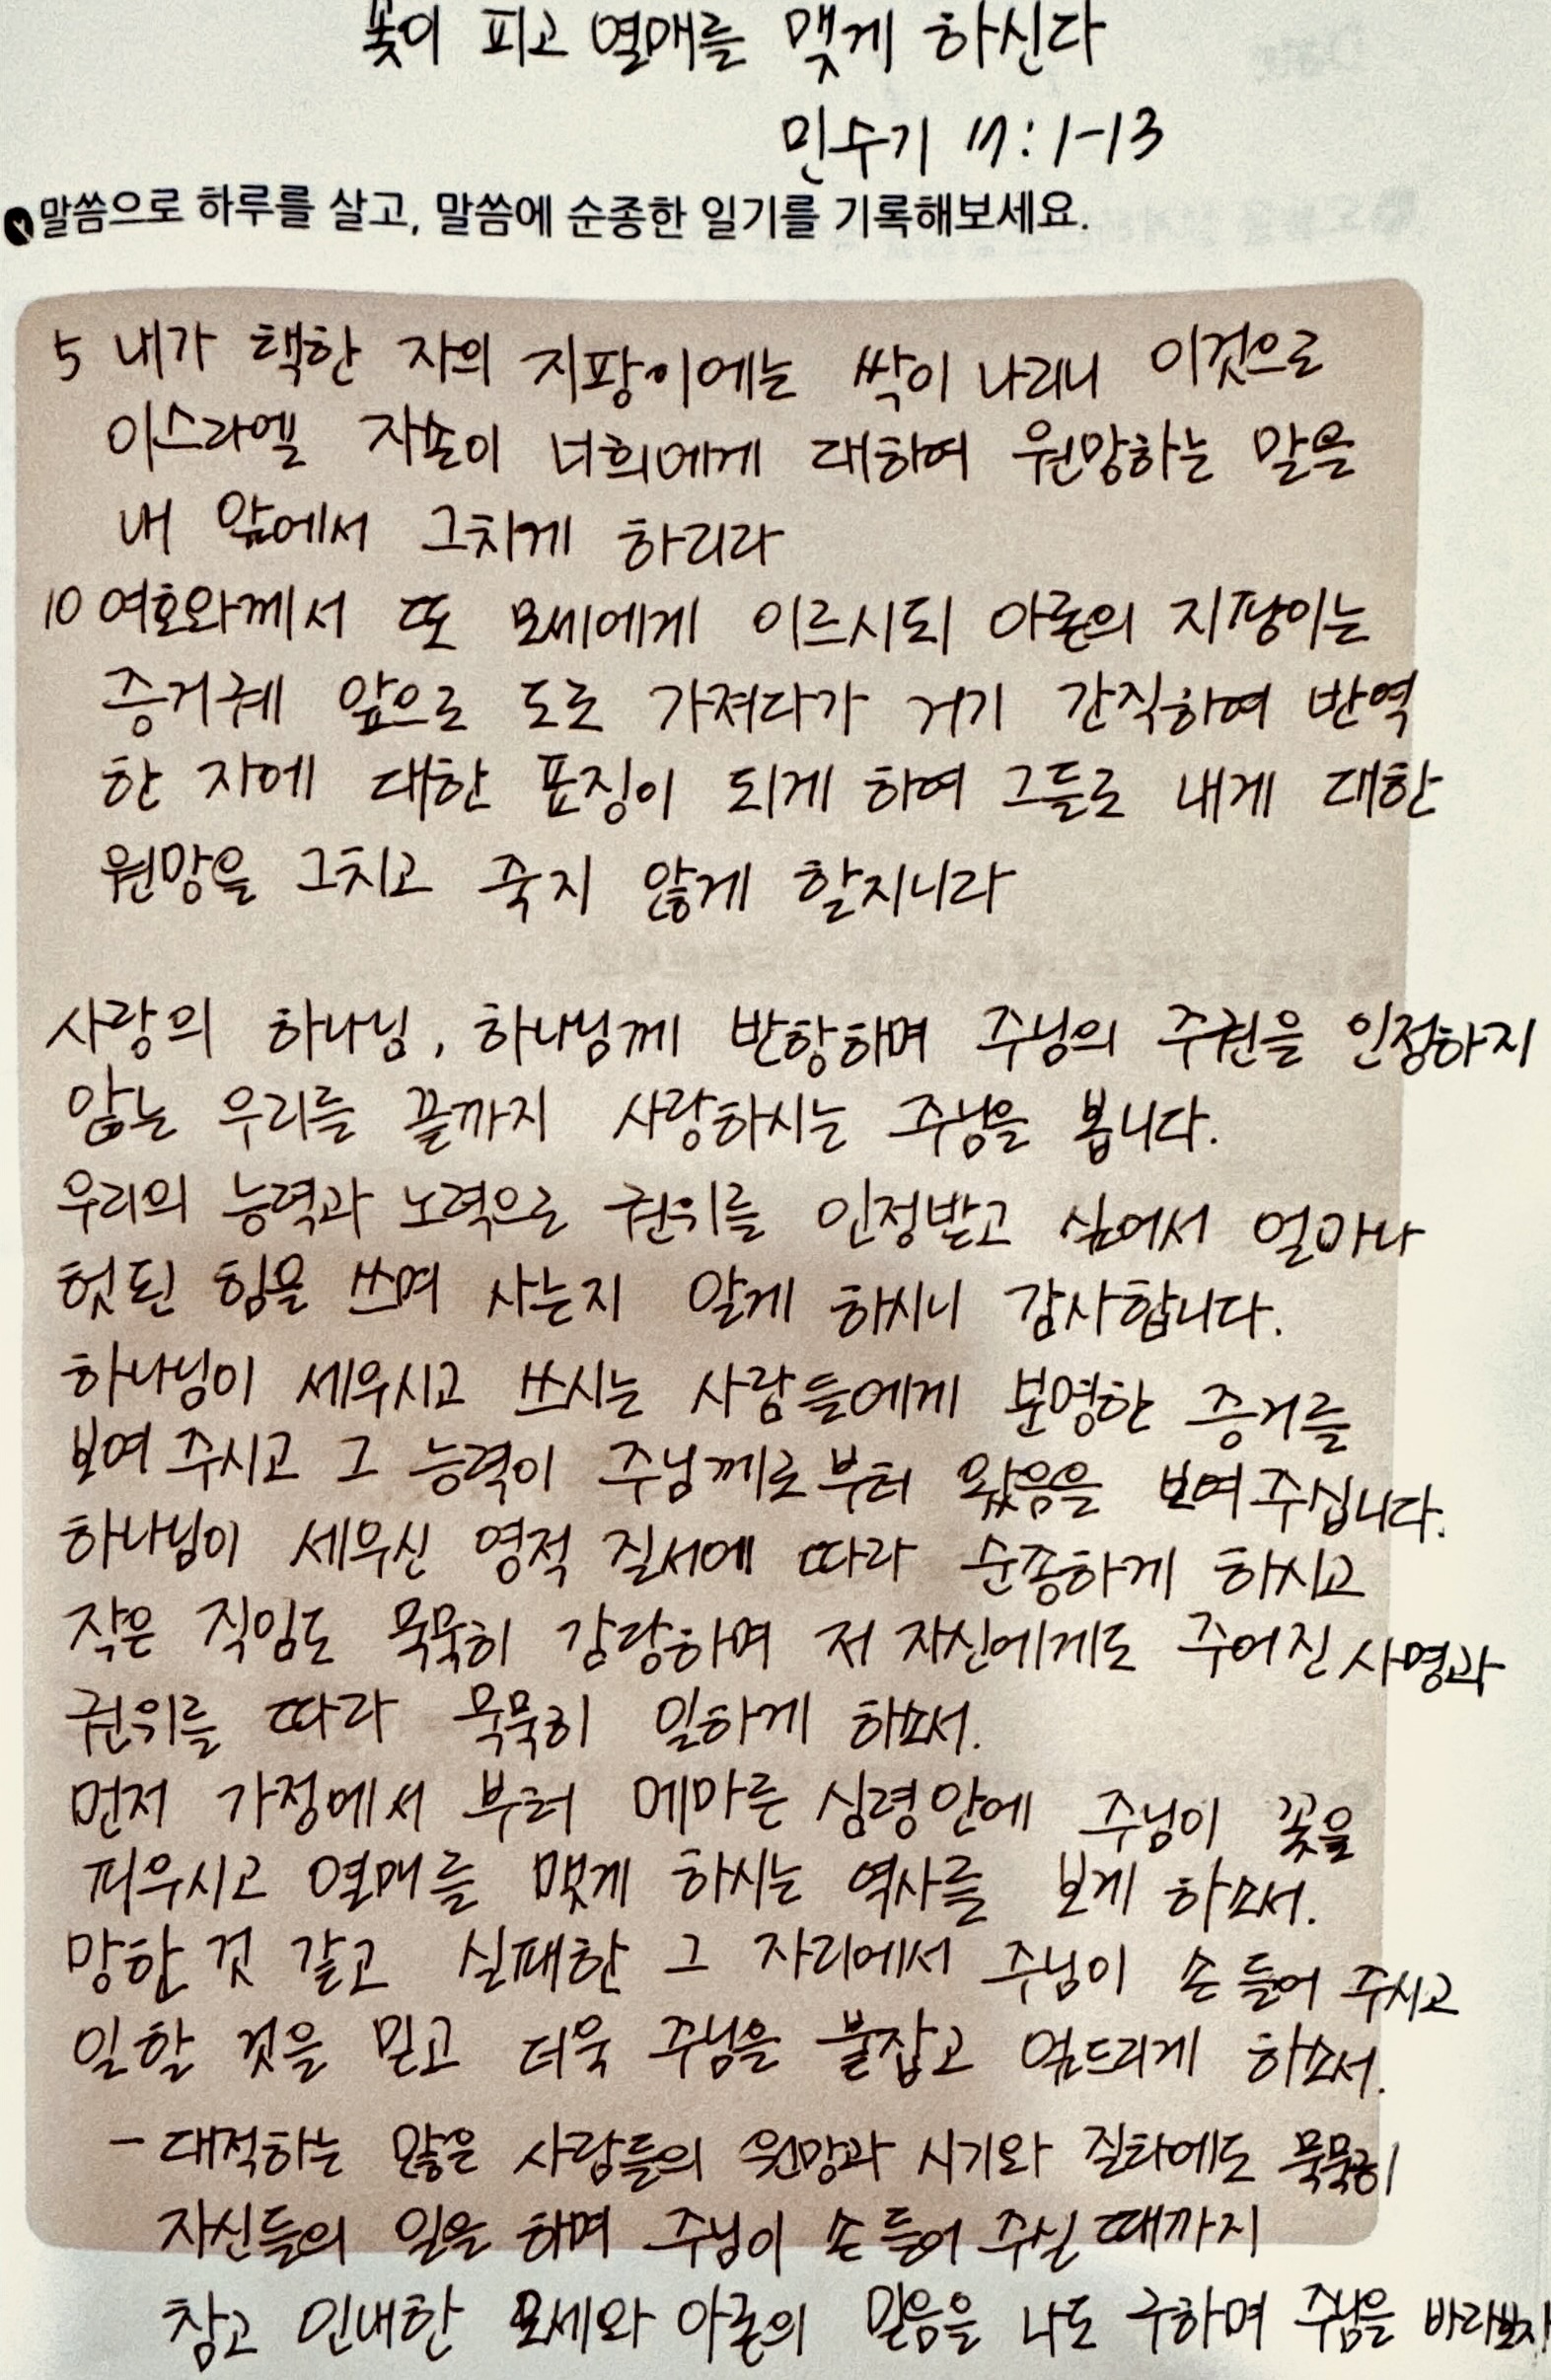 꽃이 피고 열매를 맺게 하신다
민수기 17:1-13
말씀으로 하루를 살고, 말씀에 순종한 일기를 기록해보세요.
5 내가 택한 자의 지팡이에는 싹이 나리니 이것으로
이스라엘 자손이 너희에게 대하여 원망하는 말을
내 앞에서 그치게 하리라
10 여호와께서 또 모세에게 이르시되 아론의 지팡이는
증거궤 앞으로 도로 가져다가 거기 간직하여 반역
한 자에 대한 표징이 되게 하여 그들로 내게 대한
원망을 그치고 죽지 않게 할지니라
사랑의 하나님, 하나님께 반항하며 주님의 주권을 인정하지
않는 우리를 끝까지 사랑하시는 주님을 봅니다.
우리의 능력과 노력으로 권위를 인정받고 싶어서 얼마나
헛된 힘을 쓰며 사는지 알게 하시니 감사합니다.
하나님이 세우시고 쓰시는 사람들에게 분명한 증거를
보여 주시고 그 능력이 주님께로부터 왔음을 보여주십니다.
하나님이 세우신 영적 질서에 따라 순종하게 하시고
작은 직임도 묵묵히 감당하며 저 자신에게도 주어진 사명과
권위를 따라 묵묵히 일하게 하소서.
먼저 가정에서 부터 메마른 심령안에 주님이 꽃을
피우시고 열매를 맺게 하시는 역사를 보게 하소서.
망한 것 같고 실패한 그 자리에서 주님이 손 들어 주시고
일할 것을 믿고 더욱 주님을 붙잡고 엎드리게 하소서.
- 대적하는 많은 사람들의 원망과 시기와 질타에도 묵묵히
자신들의 일을 하며 주님이 손 들어 주실 때까지
참고 인내한 모세와 아론의 믿음을 나도 구하며 주님을 바라보자